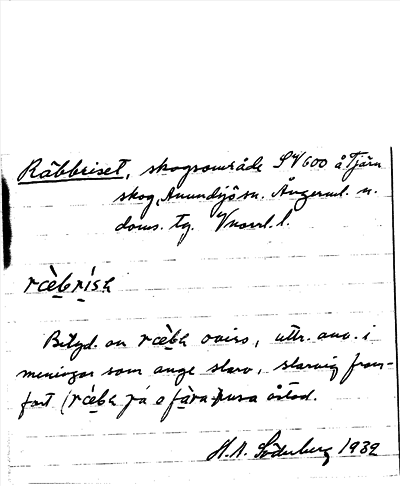 Räbbriset, skogsområde SV 600 å Tjärn
skog, Anundsjö sn. Ångerml. n.
doms. tg. Vnorrl. l.
ræ̀brísh
Betyd. av ræ̀bh oviss, uttr. anv. i
meningar som ange slarv, slarvig fram-
fart (ræ̀bh på o fàra
H. N. Söderberg 1932